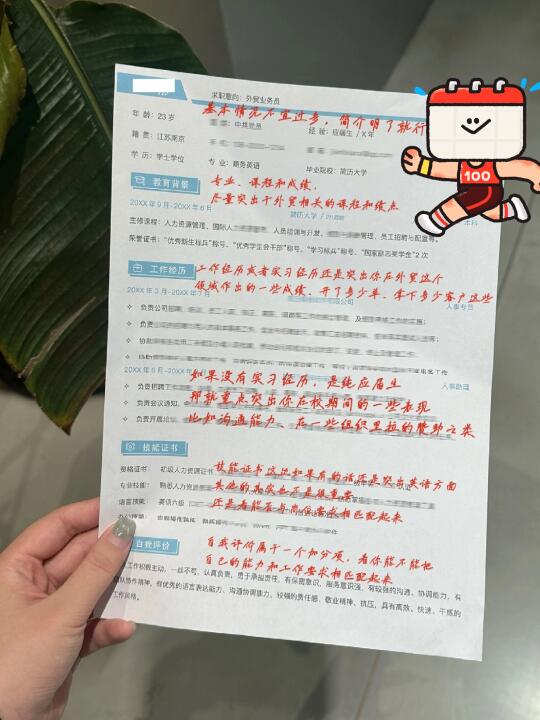 求职意向：外贸业务员
基本情况不宜过多，简介明了就行
年 龄：23 岁
中共党员
经 验：应届生 / X 年
籍 贯：江苏南京
学 历：学士学位
专 业：商务英语
毕业院校：简历大学
100
教育背景
专业、课程和成绩，
尽量突出于外贸相关的课程和绩点
20XX 年 9 月-20XX 年 6 月
简历大学 /
本科
主修课程：人力资源管理、国际人
、人员培训与开发、
管理、员工招聘与配置等。
荣誉证书："优秀新生标兵"称号、"优秀学生会干部"称号、"学习标兵"称号、"国家励志奖学金"2 次
工作经历
工作经历或者实习经历还是突出你在外贸这个
领域作出的一些成绩、开了多少单、拿下多少客户这些
20XX 年 3 月-20XX 年 7 月
公司
人事专员
负责公司
负责
协助
协助
20XX 年 6 月-20XX 年
人事助理
如果没有实习经历，是纯应届生
那就重点突出你在校期间的一些表现
比如沟通能力、在一些组织里拉的赞助之类
负责招聘工
负责会议通知、
负责开展培
技能证书
技能证书这边如果有的话还是突出英语方面
其他的其实也不是很重要
还是看能否与岗位要求相匹配起来
资格证书：
初级人力资源证书
专业技能：
熟悉人力资源
语言技能：
英语六级
办公技能：
自我评价
自我评价属于一个加分项，看你能不能把
自己的能力和工作要求相匹配起来
工作积极主动，一丝不苟，认真负责，勇于承担责任，有保密意识，服务意识强，有较强的沟通、协调能力，有
团队协作精神，有优秀的语言表达能力、沟通协调能力，较强的责任感、敬业精神、抗压，具有高效、快速、干练的
工作风格。